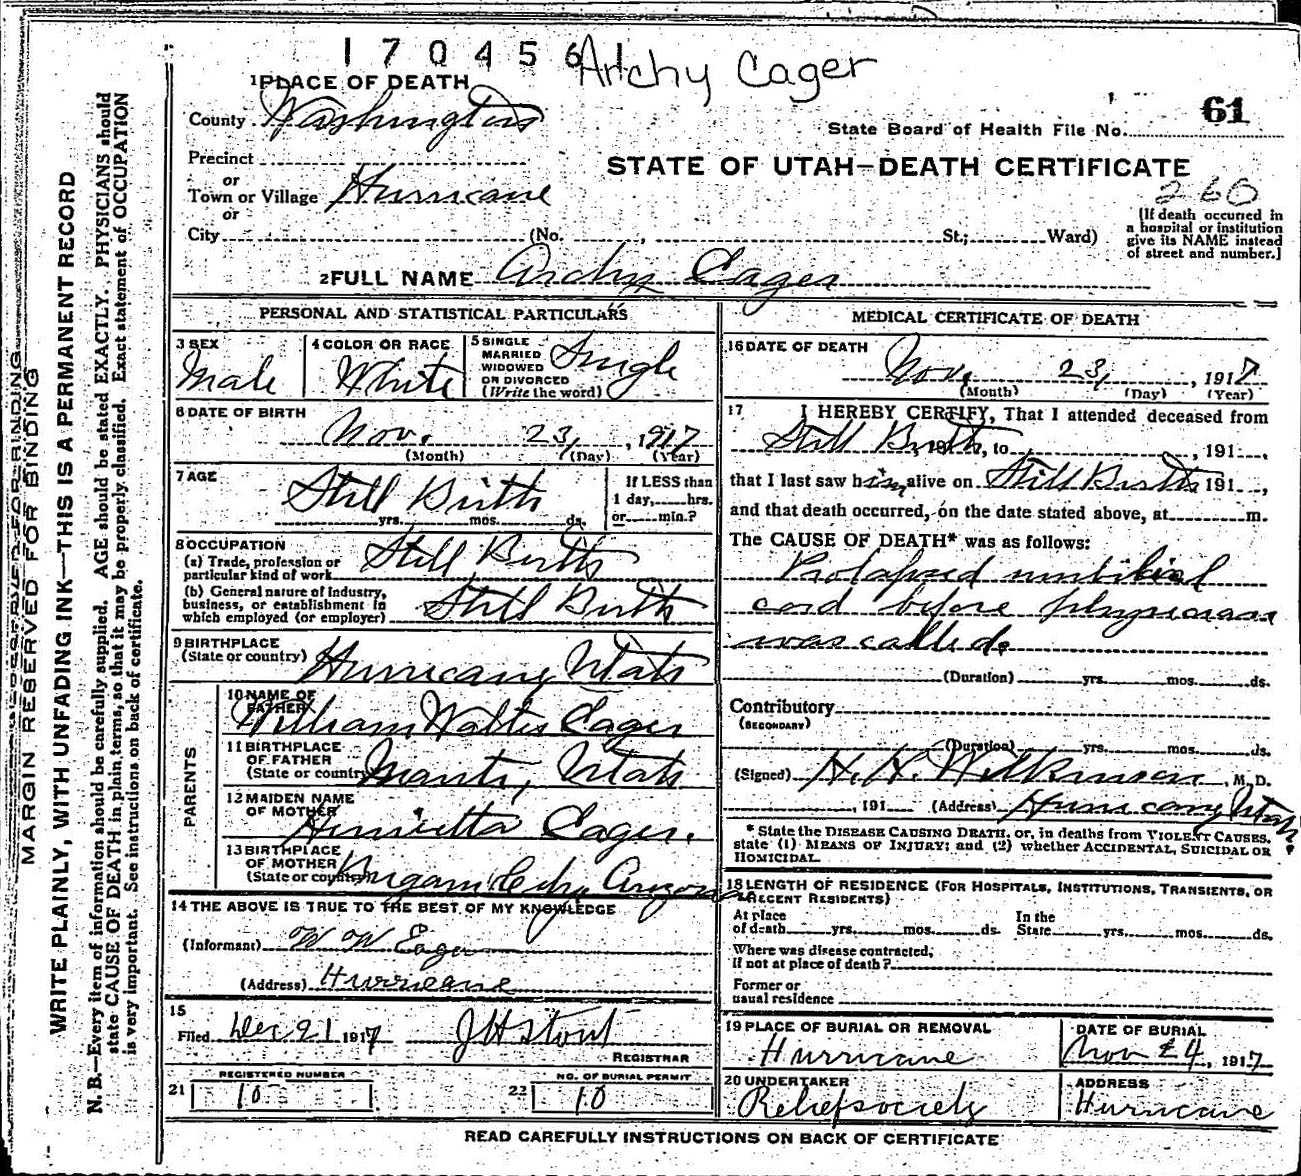 1704561
Archy Eager
1 PLACE OF DEATH
61
County Washington
State Board of Health File No.
Precinct
STATE OF UTAH—DEATH CERTIFICATE
or
Town or Village Hurricane
260
or
City (No. , St.; Ward)
(If death occurred in
a hospital or institution
give its NAME instead
of street and number.]
2 FULL NAME Archy Eager
PERSONAL AND STATISTICAL PARTICULARS
3 SEX
Male
4 COLOR OR RACE
White
5 SINGLE
MARRIED
WIDOWED
OR DIVORCED
(Write the word)
Single
6 DATE OF BIRTH
Nov. 23, 1917
(Month) (Day) (Year)
7 AGE
Still Birth
yrs. mos. ds.
If LESS than
1 day, hrs.
or min.?
8 OCCUPATION
(a) Trade, profession or
particular kind of work Still Birth
(b) General nature of Industry,
business, or establishment in
which employed (or employer) Still Birth
9 BIRTHPLACE
(State or country) Hurricane, Utah
PARENTS
10 NAME OF
FATHER William Walter Eager
11 BIRTHPLACE
OF FATHER
(State or country) Manti, Utah
12 MAIDEN NAME
OF MOTHER Henrietta Eager.
13 BIRTHPLACE
OF MOTHER
(State or country) Brigam City Arizona
14 THE ABOVE IS TRUE TO THE BEST OF MY KNOWLEDGE
(Informant) W W Eager
(Address) Hurricane
15
Filed Dec 21 1917 J H Stout
REGISTRAR
REGISTERED NUMBER
21 10
NO. OF BURIAL PERMIT
22 10
MEDICAL CERTIFICATE OF DEATH
16 DATE OF DEATH
Nov. 23, , 1917
(Month) (Day) (Year)
17 I HEREBY CERTIFY, That I attended deceased from
Still Birth, 191 , to , 191 ,
that I last saw him alive on Still Birth 191 ,
and that death occurred, on the date stated above, at m.
The CAUSE OF DEATH* was as follows:
Prolapsed umbilical
cord before physician
was called.
(Duration) yrs. mos. ds.
Contributory
(SECONDARY)
(Duration) yrs. mos. ds.
(Signed) H. H. Wilkinson, M. D.
, 191 (Address) Hurricane, Utah.
* State the DISEASE CAUSING DEATH, or, in deaths from VIOLENT CAUSES,
state (1) MEANS OF INJURY; and (2) whether ACCIDENTAL, SUICIDAL OR
HOMICIDAL.
18 LENGTH OF RESIDENCE (FOR HOSPITALS, INSTITUTIONS, TRANSIENTS, OR
RECENT RESIDENTS)
At place
of death yrs. mos. ds.
In the
State yrs. mos. ds.
Where was disease contracted,
if not at place of death?
Former or
usual residence
19 PLACE OF BURIAL OR REMOVAL
Hurricane
DATE OF BURIAL
Nov 24, 1917
20 UNDERTAKER
Relief society
ADDRESS
Hurricane
READ CAREFULLY INSTRUCTIONS ON BACK OF CERTIFICATE
MARGIN RESERVED FOR BINDING
WRITE PLAINLY, WITH UNFADING INK—THIS IS A PERMANENT RECORD
N. B.—Every item of information should be carefully supplied. AGE should be stated EXACTLY. PHYSICIANS should
state CAUSE OF DEATH in plain terms, so that it may be properly classified. Exact statement of OCCUPATION
is very important. See instructions on back of certificate.